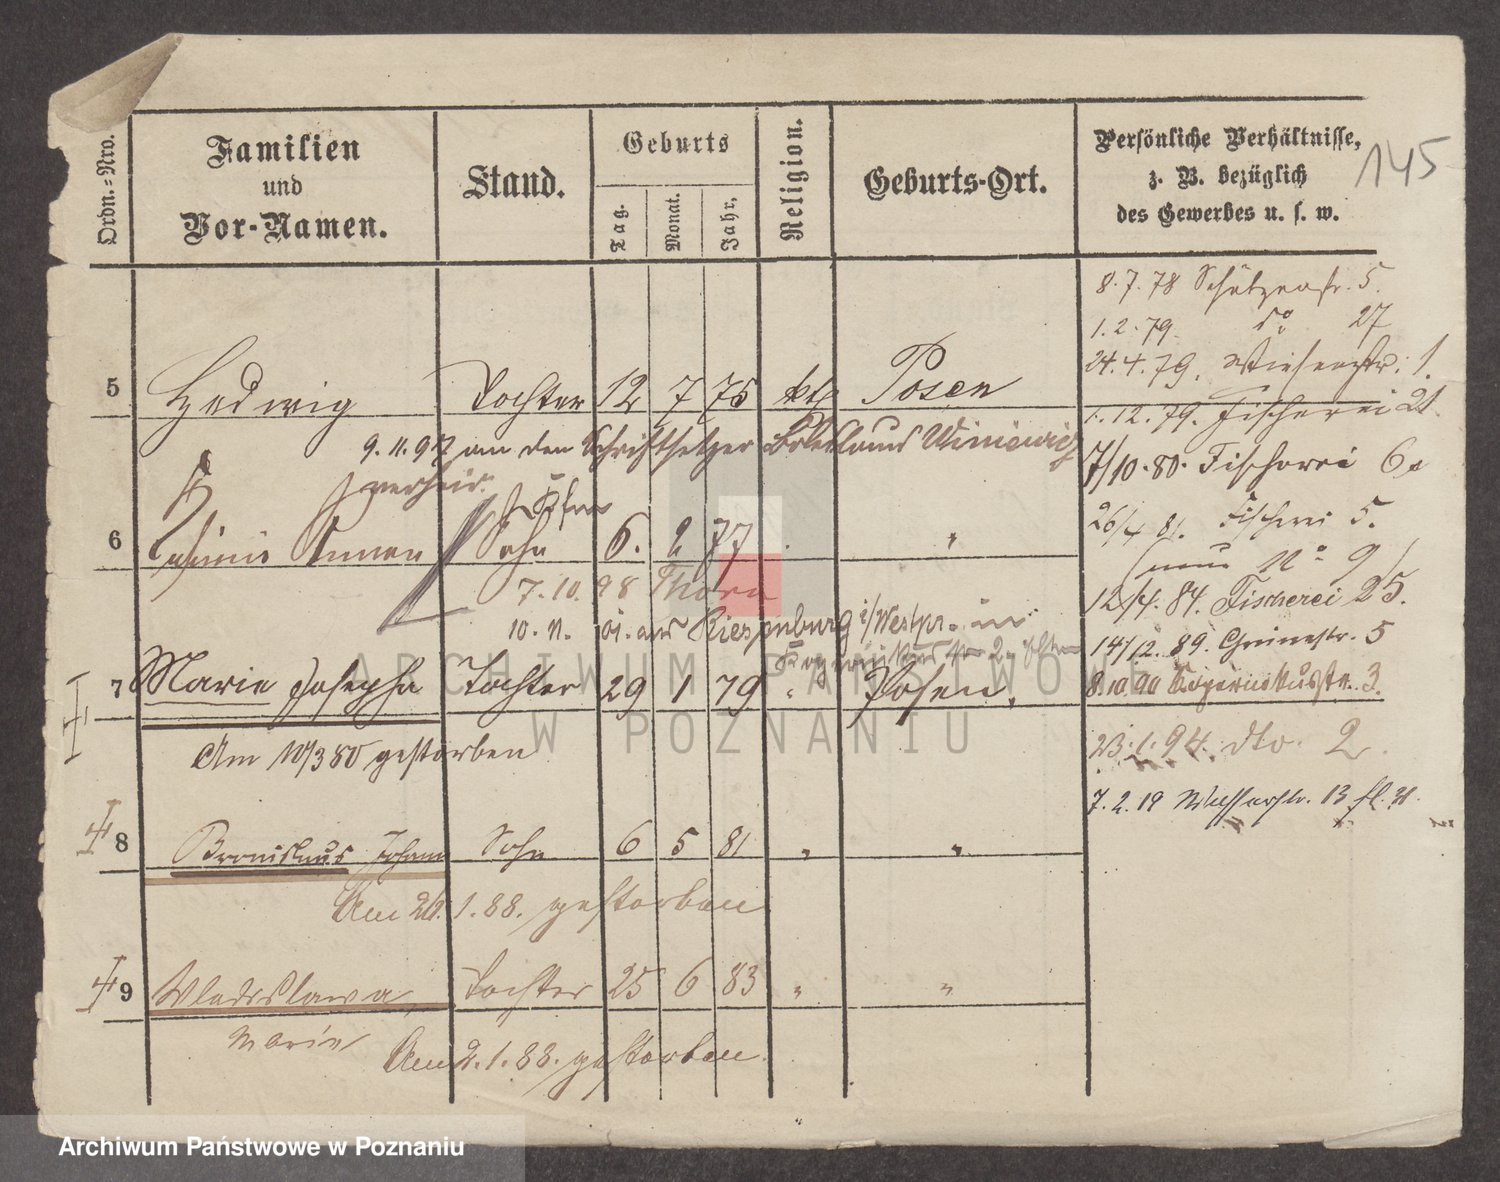 145
Ordn.=Nro.
Familien
und
Vor-Namen.
Stand.
Geburts
Tag.
Monat.
Jahr.
Religion.
Geburts-Ort.
Persönliche Verhältnisse,
z. B. bezüglich
des Gewerbes u. s. w.
8.7.78 Schützenstr. 5.
1.2.79. do 27
24.4.79. Wiesenstr. 1.
5 Hedwig Tochter 12 7 75 kth Posen
1.12.79. Fischerei 21.
9.11.97 an den Schriftsetzer Boleslaus Winiewicz
verheir.
7/10.80. Fischerei 6a
26/4 81. Fischerei 5.
6 Casimir Sohn 6. 2 77 . "
(neue No 9)
7.10.98 Thorn
12/4. 84. Fischerei 25.
10.11.01. aus Riesenburg i/Westpr. in
Kopernikusstr 2.
14/12. 89. Grünestr. 5
7 Marie Josepha Tochter 29 1 79 " Posen.
8.10.90 Kopernikusstr. 3.
Am 10/3 80 gestorben
23.1.94. dto. 2.
7.2.19 Wasserstr. 13
8 Bronislaus Johann Sohn 6 5 81 " "
Am 26.1.88. gestorben
9 Wladislawa Tochter 25 6 83 " "
Marie
Am 2.1.88. gestorben.
ARCHIWUM PAŃSTWOWE
W POZNANIU
Archiwum Państwowe w Poznaniu